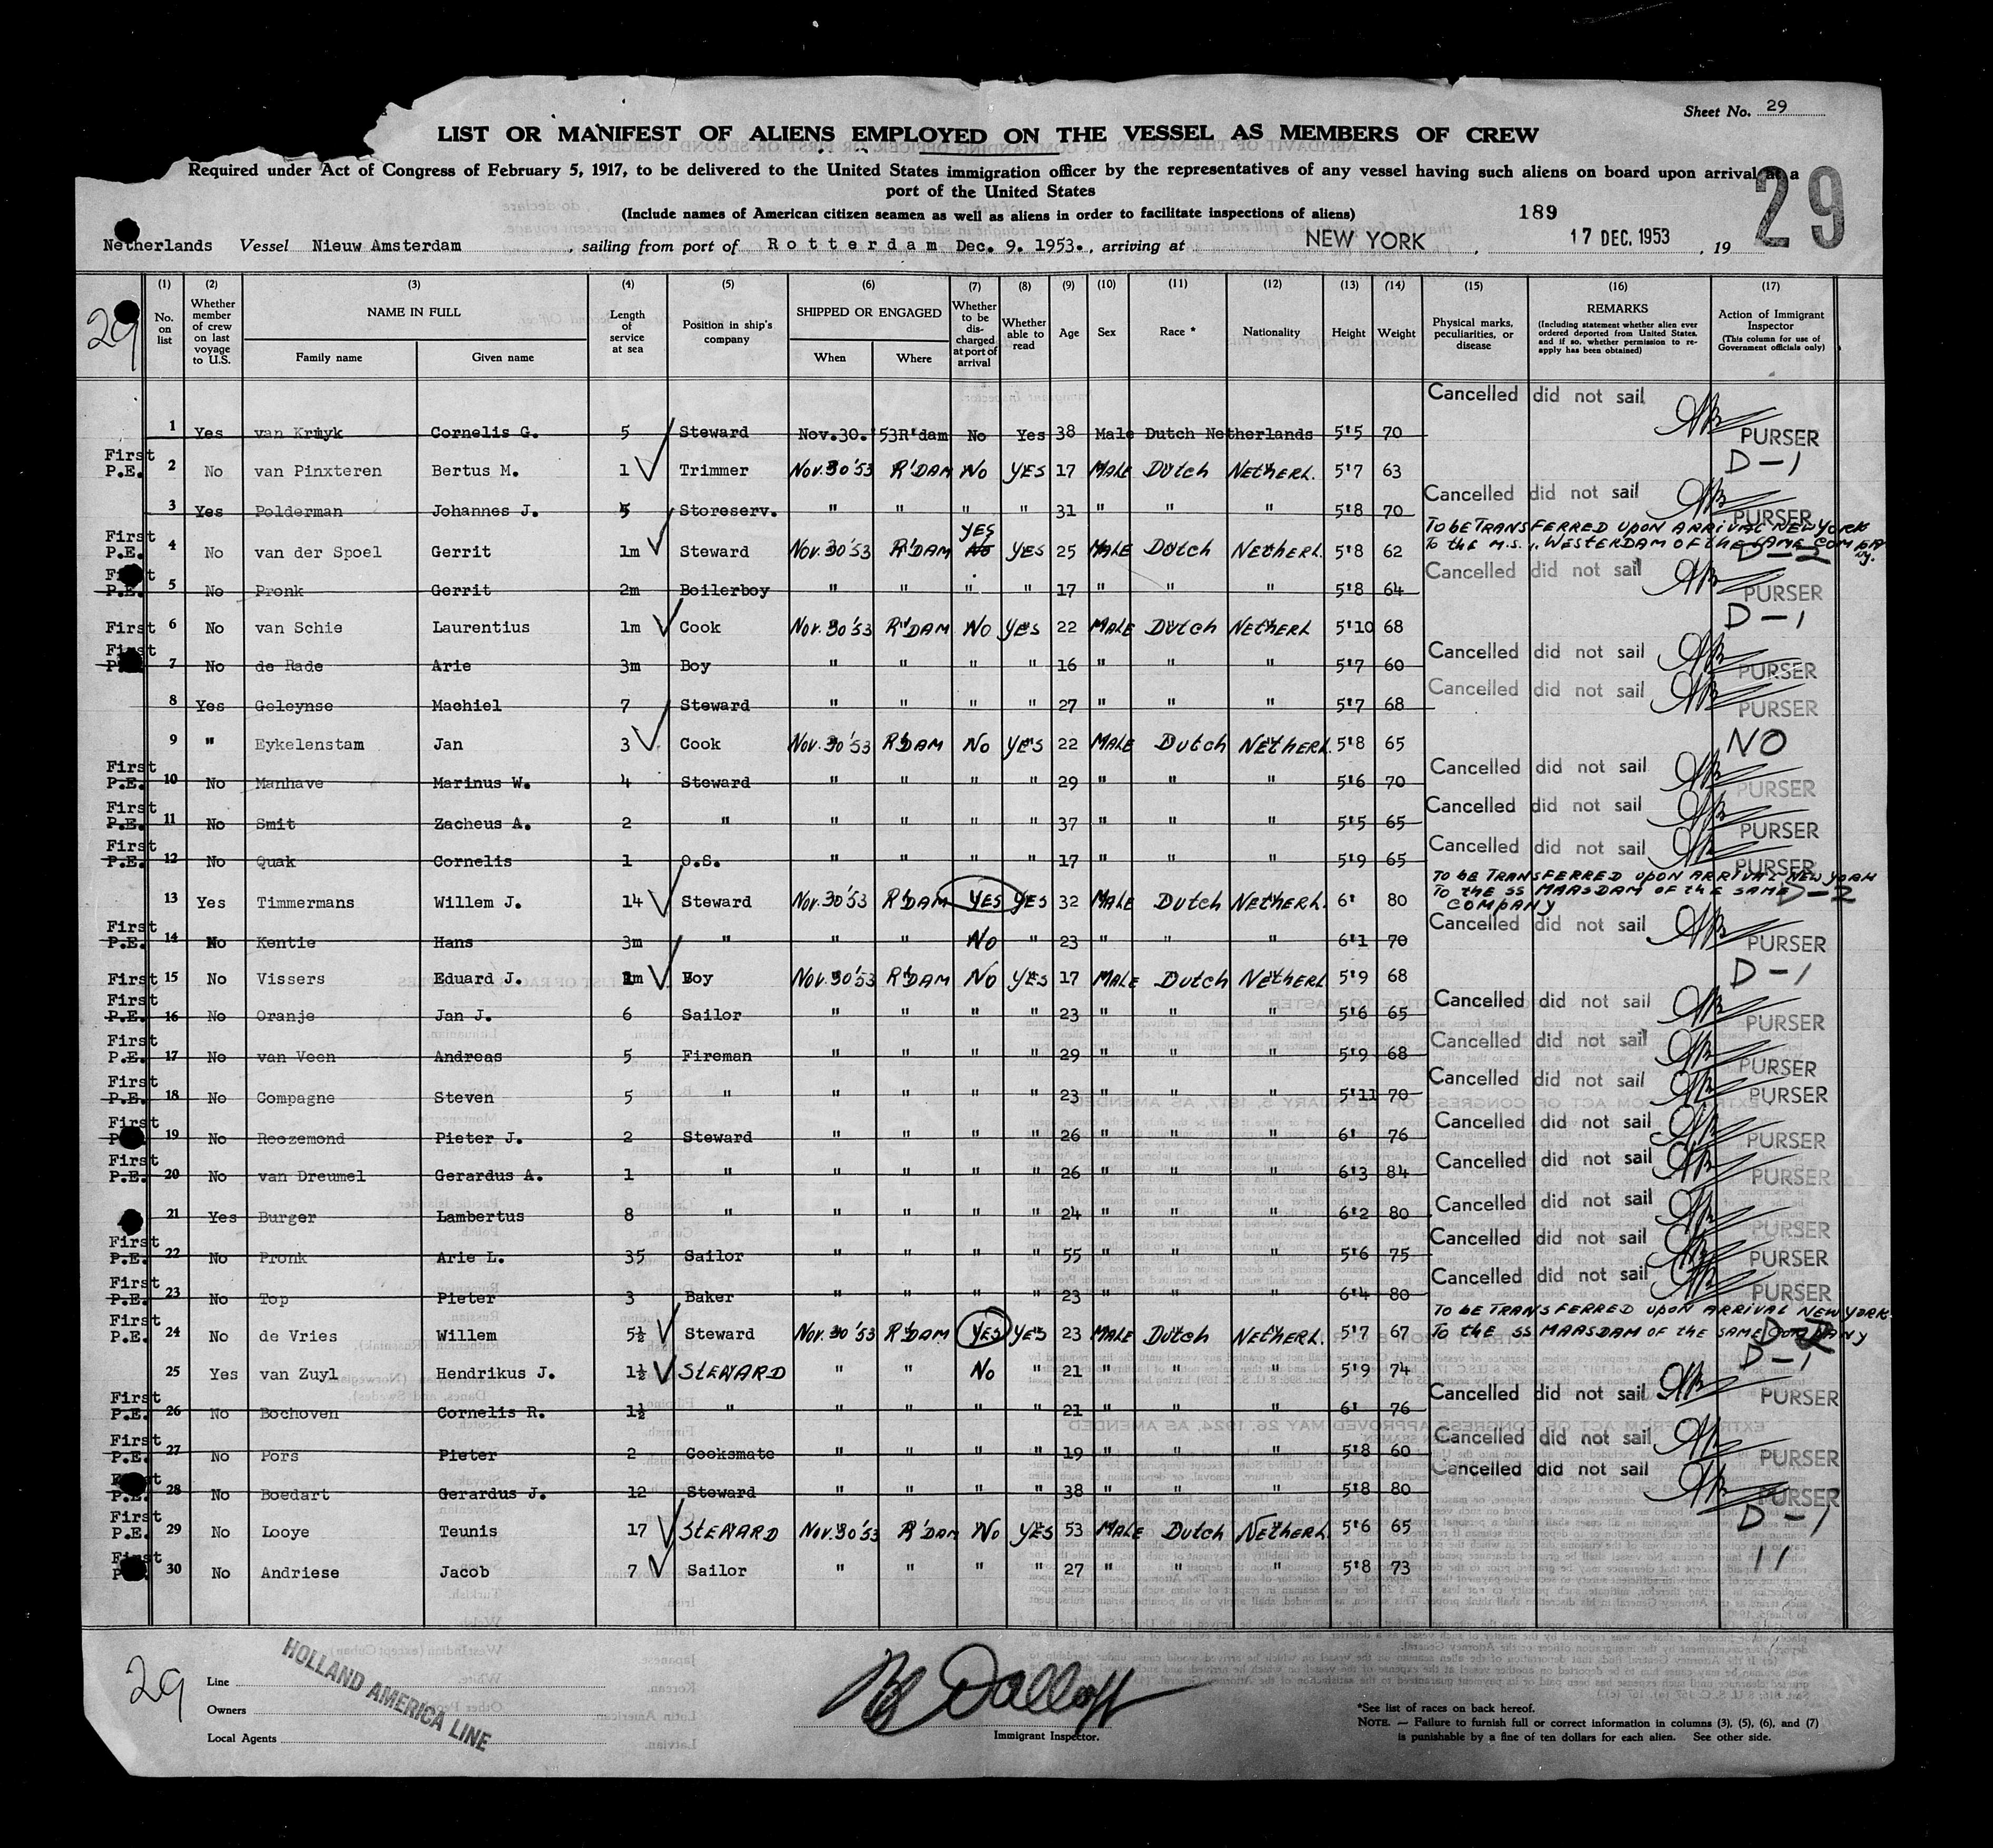 Sheet No. 29
LIST OR MANIFEST OF ALIENS EMPLOYED ON THE VESSEL AS MEMBERS OF CREW
Required under Act of Congress of February 5, 1917, to be delivered to the United States immigration officer by the representatives of any vessel having such aliens on board upon arrival at a
port of the United States
29
(Include names of American citizen seamen as well as aliens in order to facilitate inspections of aliens)
189
Netherlands Vessel Nieuw Amsterdam, sailing from port of Rotterdam Dec. 9. 1953., arriving at NEW YORK, 17 DEC. 1953, 19
29
(1) (2) (3) (4) (5) (6) (7) (8) (9) (10) (11) (12) (13) (14) (15) (16) (17)
No. on list
Whether member of crew on last voyage to U.S.
NAME IN FULL
Family name Given name
Length of service at sea
Position in ship's company
SHIPPED OR ENGAGED
When Where
Whether to be discharged at port of arrival
Whether able to read
Age
Sex
Race *
Nationality
Height
Weight
Physical marks, peculiarities, or disease
REMARKS
(Including statement whether alien ever ordered deported from United States, and if so, whether permission to reapply has been obtained)
Action of Immigrant Inspector
(This column for use of Government officials only)
Cancelled did not sail
1 Yes van Kruyk Cornelis G. 5 Steward Nov.30.'53 R'dam No Yes 38 Male Dutch Netherlands 5'5 70 PURSER
First P.E. 2 No van Pinxteren Bertus M. 1 Trimmer Nov.30'53 R'DAM No YES 17 MALE Dutch NETHERL. 5'7 63 D-1
Cancelled did not sail
3 Yes Polderman Johannes J. 5 Storeserv. " " " " 31 " " " 5'8 70 PURSER
To be TRANSFERRED UPON ARRIVAL NEW YORK
First P.E. 4 No van der Spoel Gerrit 1m Steward Nov.30'53 R'DAM No YES YES 25 MALE Dutch NETHERL. 5'8 62 To the M.S. "WESTERDAM OF the SAME COMPANY. D-2
Cancelled did not sail
First P.E. 5 No Pronk Gerrit 2m Boilerboy " " " " 17 " " " 5'8 64 PURSER
First 6 No van Schie Laurentius 1m Cook Nov.30'53 R'DAM No YES 22 MALE Dutch NETHERL 5'10 68 D-1
Cancelled did not sail
First 7 No de Rade Arie 3m Boy " " " " 16 " " " 5'7 60 PURSER
Cancelled did not sail
8 Yes Geleynse Machiel 7 Steward " " " " 27 " " " 5'7 68 PURSER
9 " Eykelenstam Jan 3 Cook Nov.30'53 R'DAM No YES 22 MALE Dutch NETHERL. 5'8 65 NO
Cancelled did not sail
First P.E. 10 No Manhave Marinus W. 4 Steward " " " " 29 " " " 5'6 70 PURSER
Cancelled did not sail
First P.E. 11 No Smit Zacheus A. 2 " " " " " 37 " " " 5'5 65 PURSER
Cancelled did not sail
First P.E. 12 No Quak Cornelis 1 O.S. " " " " 17 " " " 5'9 65 PURSER
To be TRANSFERRED UPON ARRIVAL NEW YORK
13 Yes Timmermans Willem J. 14 Steward Nov.30'53 R'DAM YES YES 32 MALE Dutch NETHERL. 6' 80 To the SS MAASDAM OF the SAME D-2
COMPANY
Cancelled did not sail
First P.E. 14 No Kentie Hans 3m " " " No " 23 " " " 6'1 70 PURSER
First 15 No Vissers Eduard J. Boy Nov.30'53 R'DAM No YES 17 MALE Dutch NETHERL 5'9 68 D-1
Cancelled did not sail
First P.E. 16 No Oranje Jan J. 6 Sailor " " " " 23 " " " 5'6 65 PURSER
Cancelled did not sail
First P.E. 17 No van Veen Andreas 5 Fireman " " " " 29 " " " 5'9 68 PURSER
Cancelled did not sail
First P.E. 18 No Compagne Steven 5 " " " " " 23 " " " 5'11 70 PURSER
Cancelled did not sail
First 19 No Roozemond Pieter J. 2 Steward " " " " 26 " " " 6' 76 PURSER
Cancelled did not sail
First P.E. 20 No van Dreumel Gerardus A. 1 " " " " " 26 " " " 6'3 84 PURSER
Cancelled did not sail
21 Yes Burger Lambertus 8 " " " " " 24 " " " 6'2 80 PURSER
Cancelled did not sail
First P.E. 22 No Pronk Arie L. 35 Sailor " " " " 55 " " " 5'6 75 PURSER
Cancelled did not sail
First P.E. 23 No Top Pieter 3 Baker " " " " 23 " " " 6'4 80 PURSER
To be TRANSFERRED UPON ARRIVAL NEW YORK.
First P.E. 24 No de Vries Willem 5½ Steward Nov.30'53 R'DAM YES YES 23 MALE Dutch NETHERL. 5'7 67 To the SS MAASDAM OF the SAME COMPANY D-2
25 Yes van Zuyl Hendrikus J. 1½ STEWARD " " No " 21 " " " 5'9 74 D-1
Cancelled did not sail PURSER
First P.E. 26 No Bochoven Cornelis R. 1½ " " " " " 21 " " " 6' 76
Cancelled did not sail
First P.E. 27 No Pors Pieter 2 Cooksmate " " " " 19 " " " 5'8 60 PURSER
Cancelled did not sail
First P.E. 28 No Boedart Gerardus J. 12 Steward " " " " 38 " " " 5'8 80 PURSER
First P.E. 29 No Looye Teunis 17 STEWARD Nov.30'53 R'DAM No YES 53 MALE Dutch NETHERL 5'6 65 D-1
First 30 No Andriese Jacob 7 Sailor " " " " 27 " " " 5'8 73 11
29
HOLLAND AMERICA LINE
Line
Owners
Local Agents
Immigrant Inspector.
*See list of races on back hereof.
NOTE. — Failure to furnish full or correct information in columns (3), (5), (6), and (7)
is punishable by a fine of ten dollars for each alien. See other side.